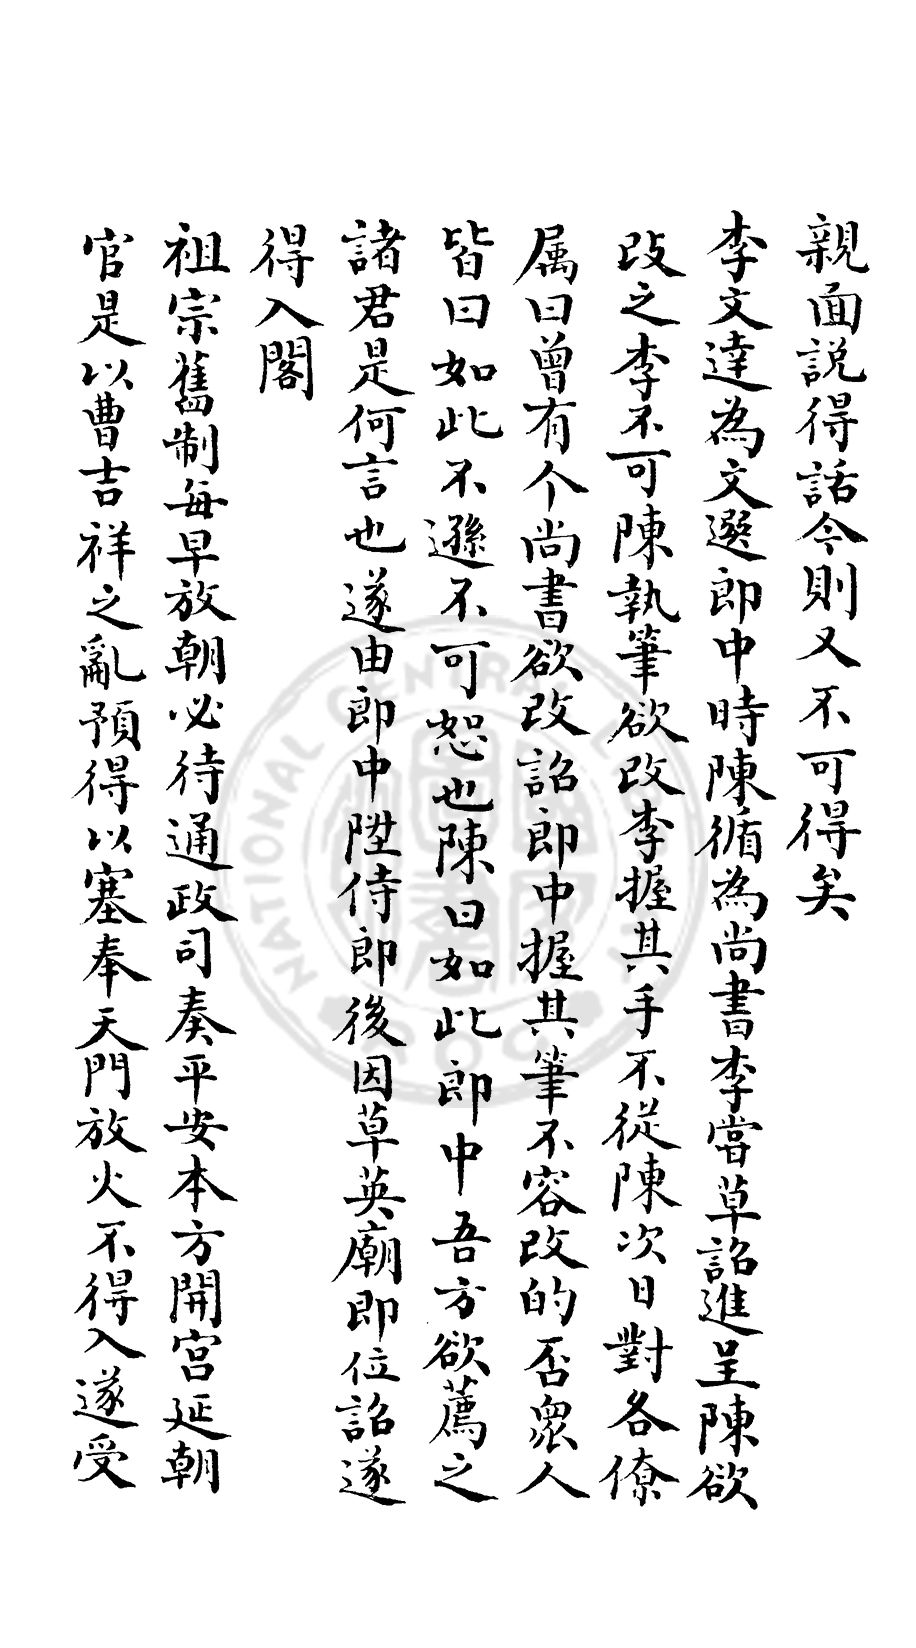 親面説得話今則又不可得矣
李文達為文選郎中時陳循為尚書李當草詔進呈陳欲
改之李不可陳執筆欲改李握其手不從陳次日對各僚
属曰曾有个尚書欲改詔郎中握其筆不容改的否衆人
皆曰如此不遜不可恕也陳曰如此郎中吾方欲薦之
諸君是何言也遂由郎中陞侍郎後因草英廟即位詔遂
得入閣
祖宗舊制每早放朝必待通政司奏平安本方開宫延朝
官是以曹吉祥之亂預得以塞奉天門放火不得入遂受
NATIONAL CENTRAL LIBRARY